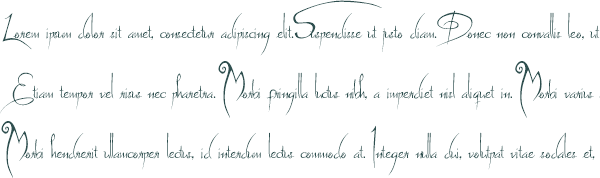 Lorem ipsum dolor sit amet, consectetur adipiscing elit. Suspendisse ut justo diam. Donec non convallis leo, ut
Etiam tempor vel risus nec pharetra. Morbi fringilla luctus nibh, a imperdiet nisl aliquet in. Morbi varius
Morbi hendrerit ullamcorper lectus, id interdum lectus commodo at. Integer nulla dui, volutpat vitae sodales et,